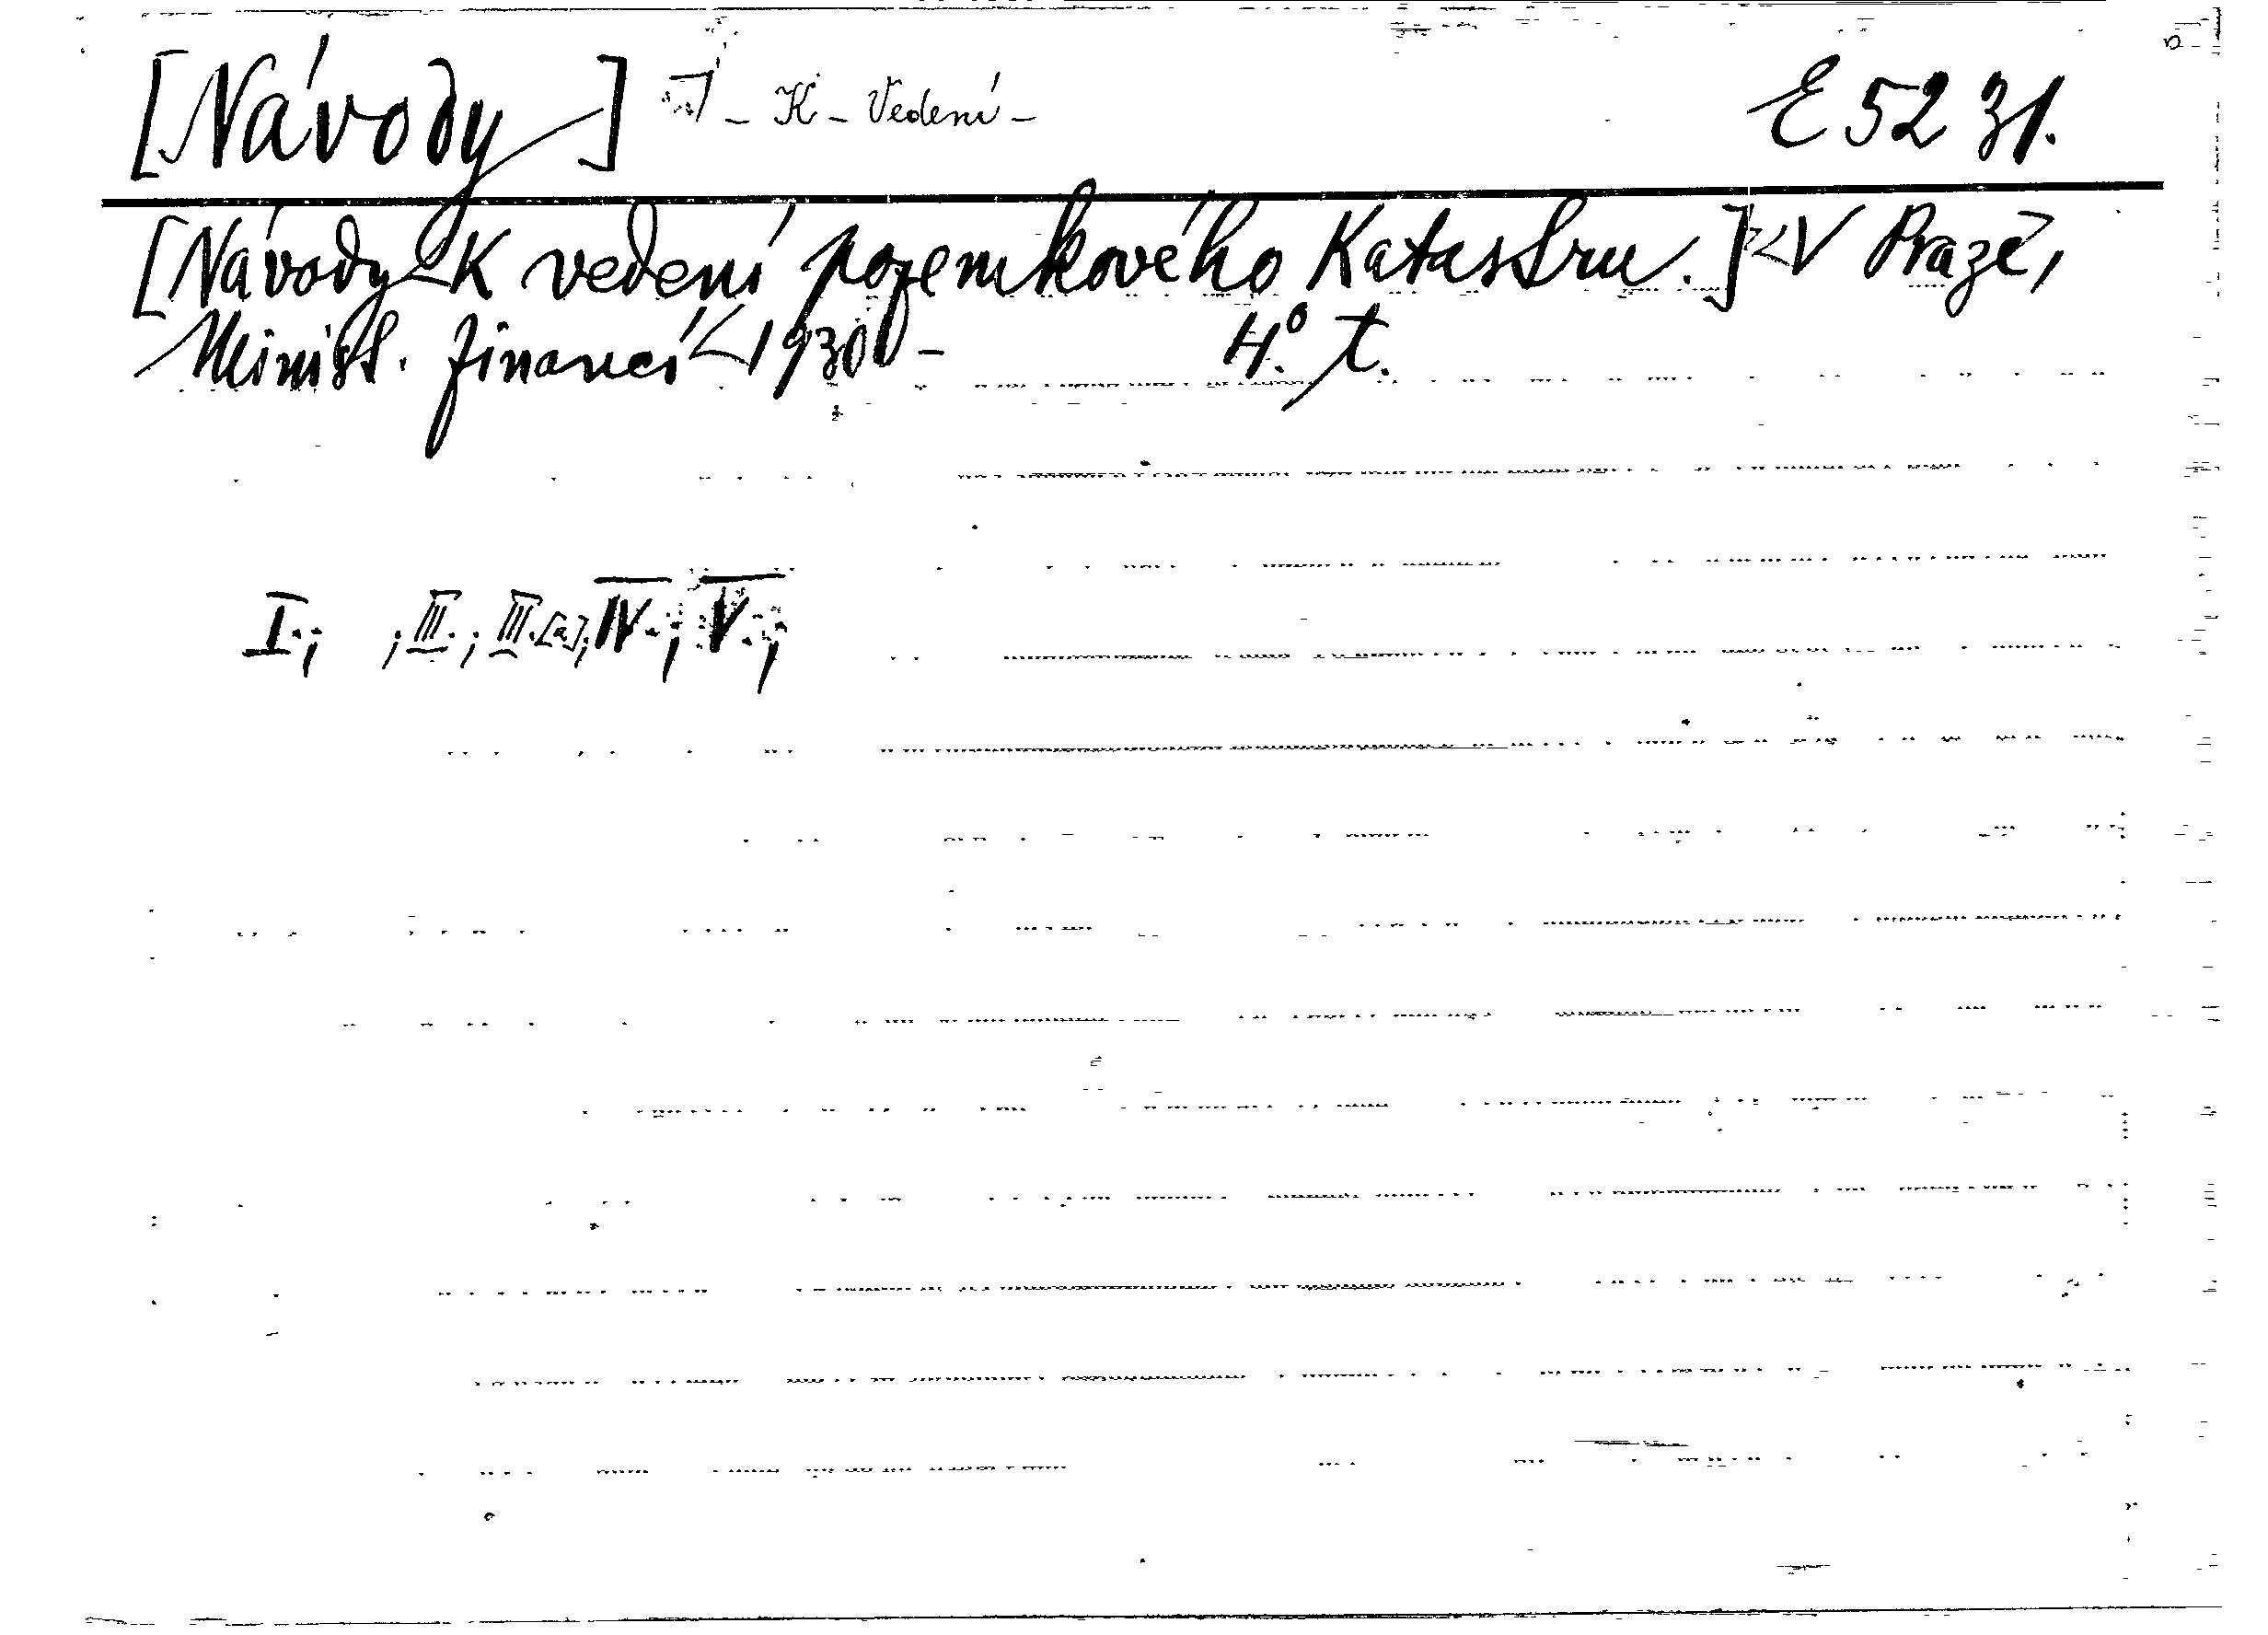 [Návody] - K - Vedení - E 52 31.
[Návody K vedení pozemkového Katastru.] V Praze,
Minist. financí 1930 - 4.° t.
I.; ; III.; III.[a]; IV.; V.;